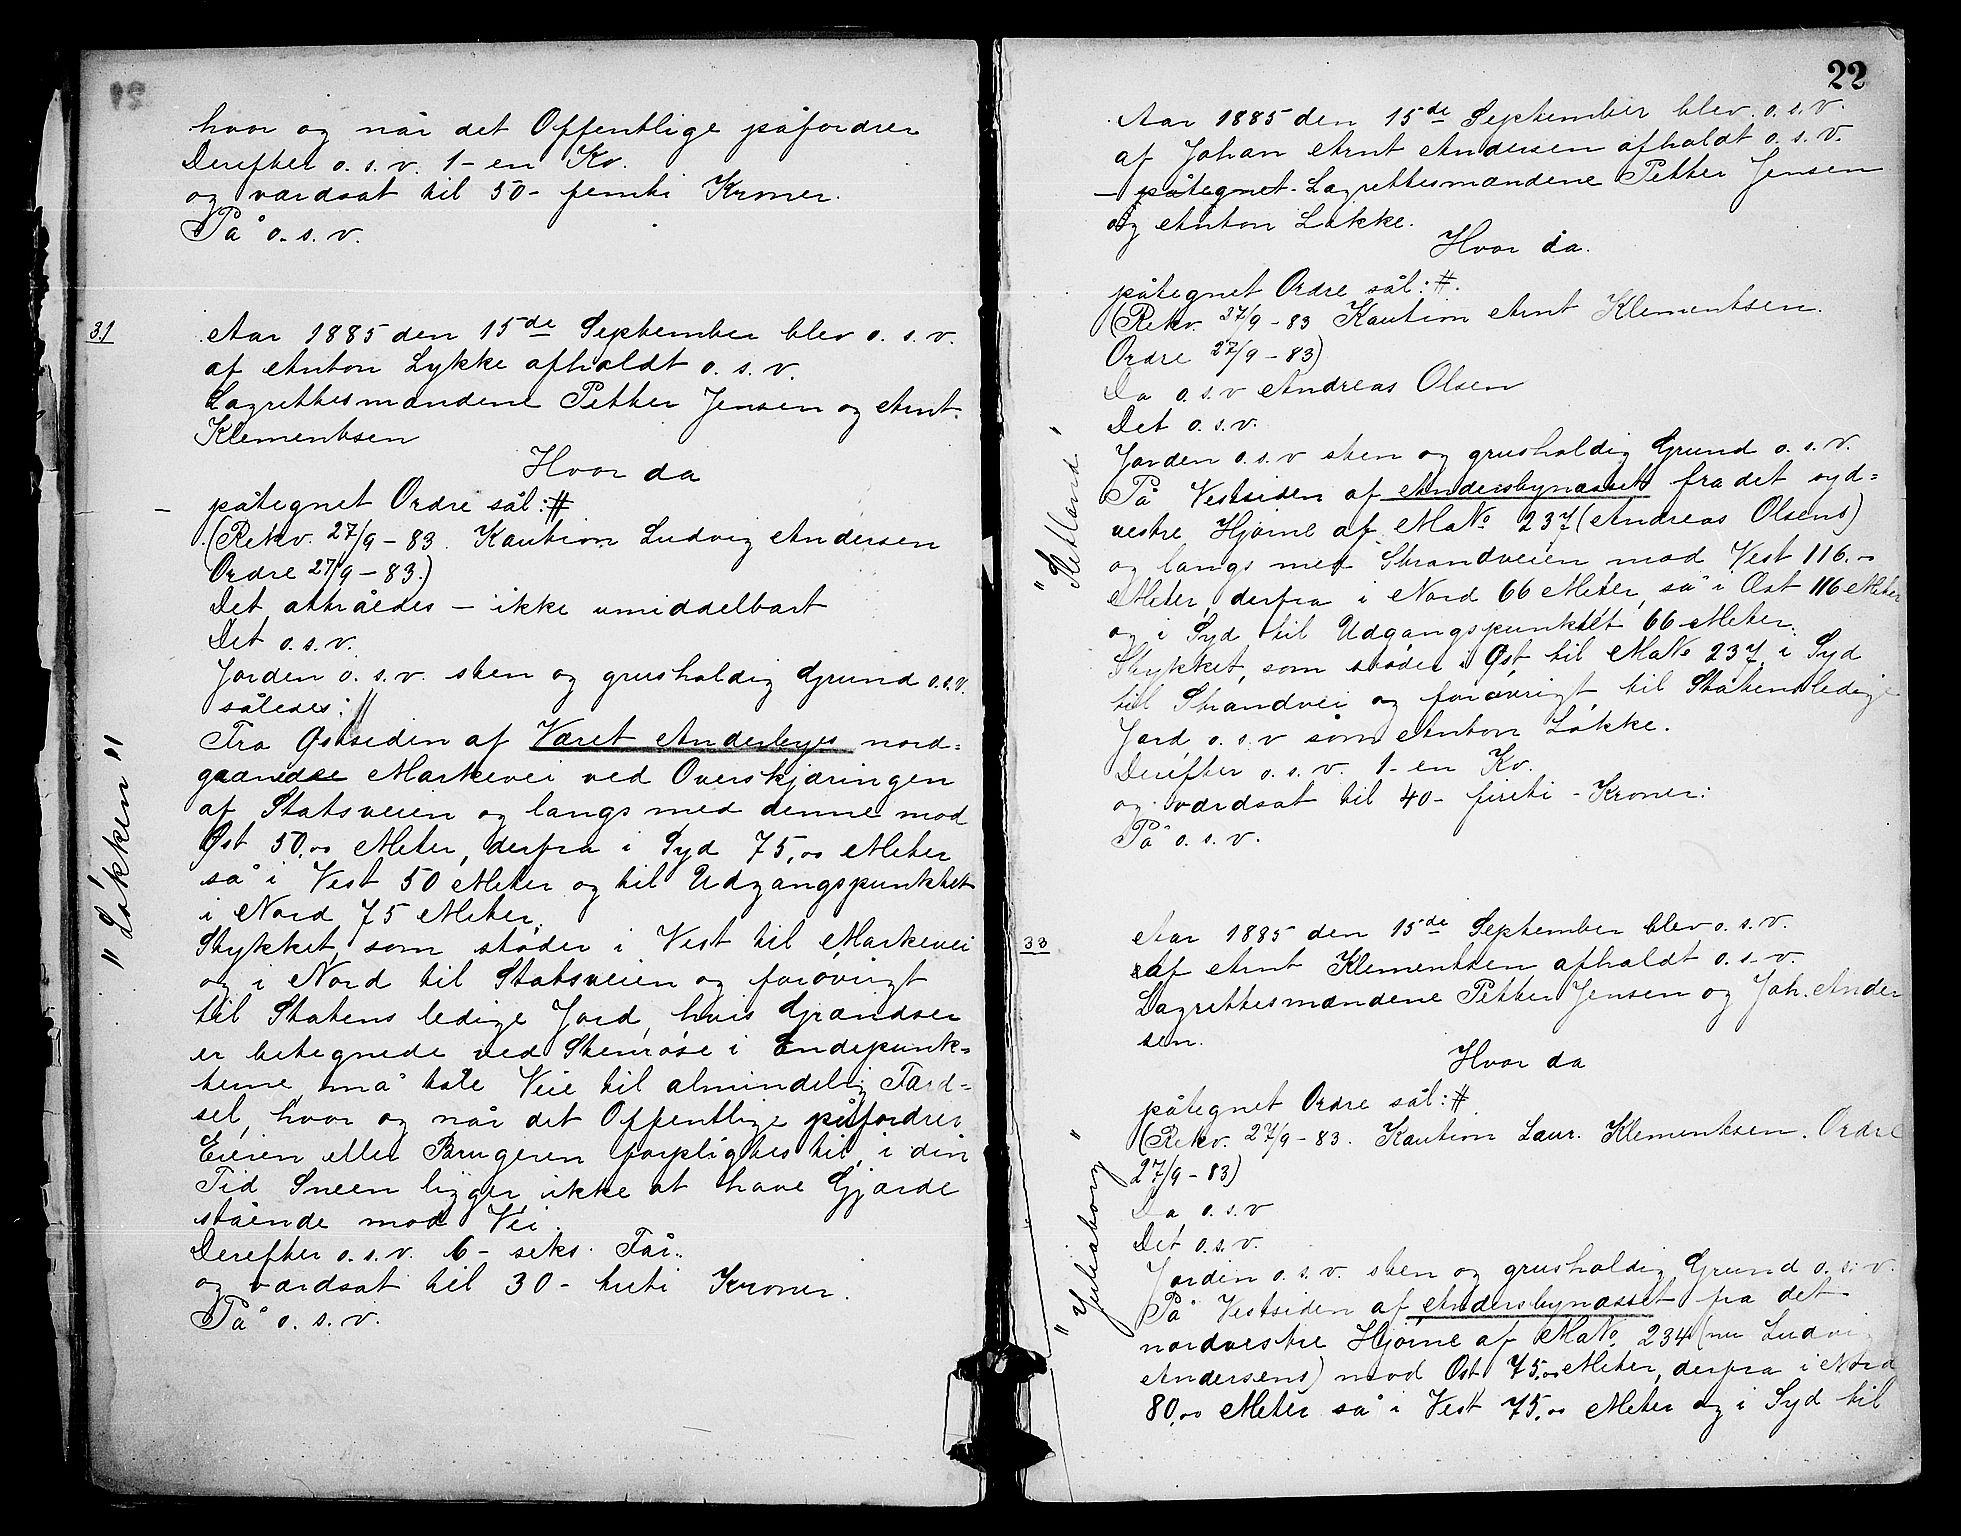 hvor og når det Offentlige påfordrer
Derefter o. s. v. 1 - en Ko.
og værdsat til 50 - femti Kroner.
På o. s. v.
31
Aar 1885 den 15de September blev o. s. v.
af Anton Lykke afholdt o. s. v.
Lagrettesmændene Petter Jensen og Arnt
Klementsen
Hvor da
- påtegnet Ordre sål: #
(Rekv. 27/9 - 83. Kaution Ludvig Andersen
Ordre 27/9 - 83.)
Det attråedes - ikke umiddelbart
Det o. s. v.
Jorden o. s. v. sten og grusholdig Grund o. s. v.
således: //
"Løkken"
Fra Østsiden af Været Andersbyes nord=
gaaende Markevei ved Overskjæringen
af Statsveien og langs med denne mod
Øst 50,00 Meter, derfra i Syd 75,00 Meter
så i Vest 50 Meter og til Udgangspunktet
i Nord 75 Meter.
Stykket, som støder i Vest til Markevei
og i Nord til Statsveien og forøvrigt
til Statens ledige Jord, hvis Grændser
er betegnede ved Stenrøse i Endepunk=
terne, må tåle Veie til almindelig Færd=
sel, hvor og når det Offentlige påfordrer
Eieren eller Brugeren forpligtes til, i den
Tid Sneen ligger ikke at have Gjærde
stående mod Vei.
Derefter o. s. v. 6 - seks Får.
og værdsat til 30 - treti Kroner.
På o. s. v.
22
Aar 1885 den 15de September blev o. s. v.
af Johan Arnt Andersen afholdt o. s. v.
- påtegnet - Lagrettesmændene Petter Jensen
og Anton Løkke.
Hvor da.
påtegnet Ordre sål: #.
(Rekv. 27/9 - 83 Kaution Arnt Klementsen.
Ordre 27/9 - 83)
Da o. s. v Andreas Olsen
Det o. s. v.
Jorden o. s. v sten og grusholdig Grund o. s. v.
På Vestsiden af Andersbynæsset fra det syd=
vestre Hjørne af MaNo 237 (Andreas Olsens)
og langs med Strandveien mod Vest 116. -
Meter, derfra i Nord 66 Meter, så i Øst 116 Meter
og i Syd til Udgangspunktet 66 Meter.
Stykket, som støder i Øst til MaNo 237, i Syd
til Strandvei og forøvrigt til Statens ledige
Jord, o. s. v som Anton Løkke.
Derefter o. s. v. 1 - en Ko.
og værdsat til 40 - firti - Kroner.
På o. s. v.
33
Aar 1885 den 15de September blev o. s. v.
af Arnt Klementsen afholdt o. s. v.
Lagrettesmændene Petter Jensen og Joh. Ander
sen.
Hvor da
påtegnet Ordre sål: #
(Rekv. 27/9 - 83. Kaution Laur. Klementsen. Ordre
27/9 - 83)
Da o. s. v
Det o. s. v.
"Julieborg"
Jorden o. s. v. sten og grusholdig Grund o. s. v.
På Vestsiden af Andersbynæsset fra det
nordvestre Hjørne af MaNo 234 (nu Ludvig
Andersens) mod Øst 75,00 Meter, derfra i Nord
80,00 Meter så i Vest 75,00 Meter og i Syd til